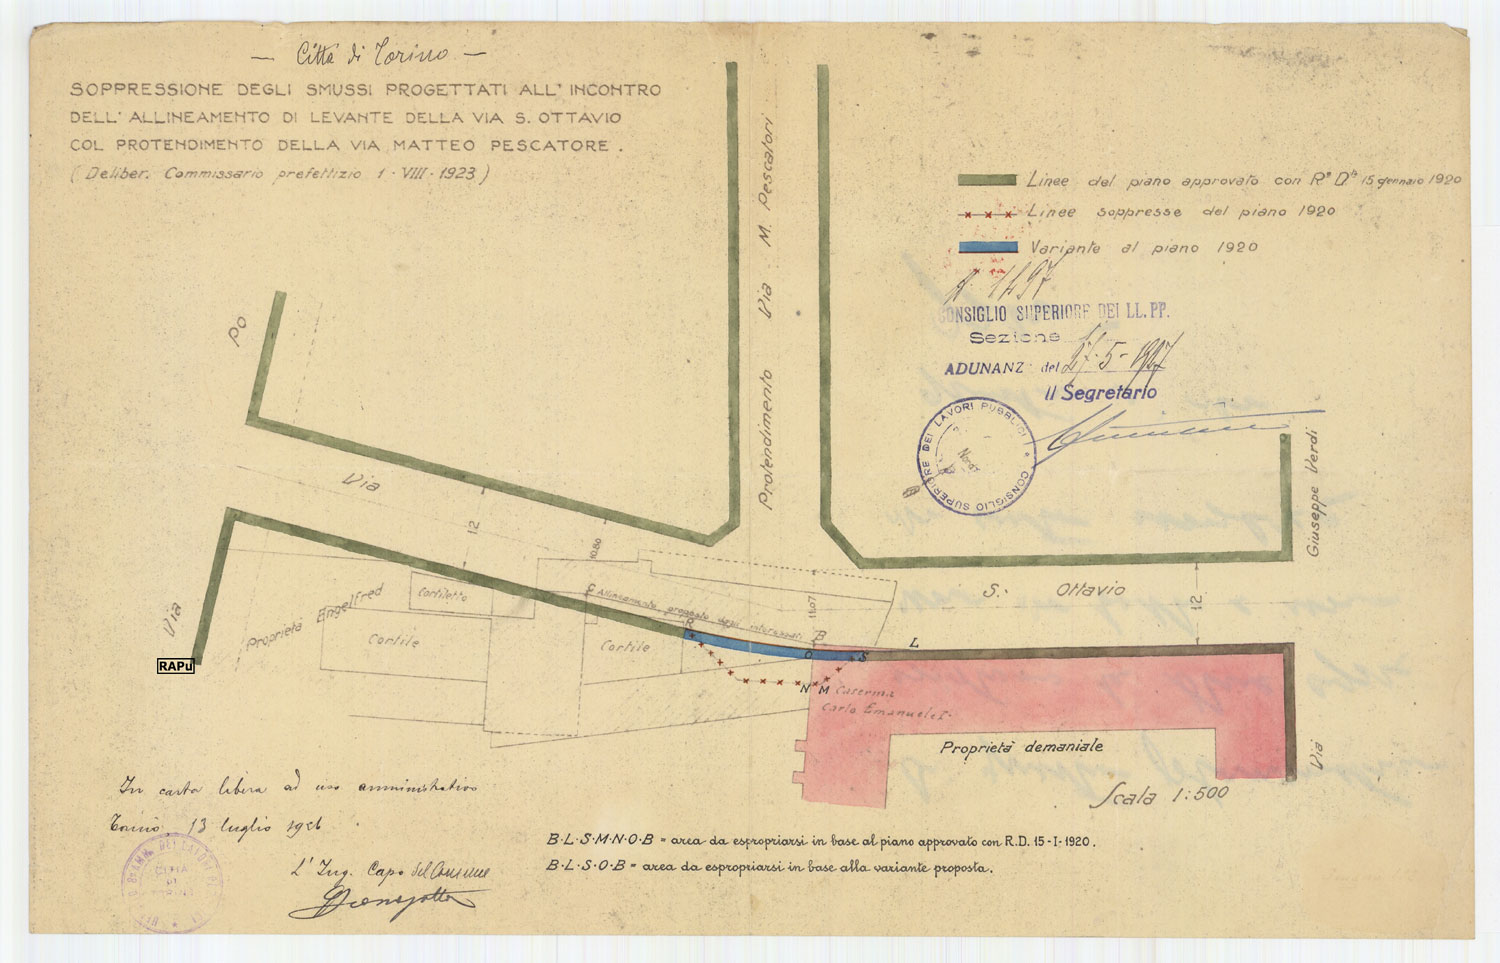 — Città di Torino —
SOPPRESSIONE DEGLI SMUSSI PROGETTATI ALL' INCONTRO
DELL' ALLINEAMENTO DI LEVANTE DELLA VIA S. OTTAVIO
COL PROTENDIMENTO DELLA VIA MATTEO PESCATORE.
(Deliber. Commissario prefettizio 1·VIII·1923)
Linee del piano approvato con R° D° 15 gennaio 1920
Linee soppresse del piano 1920
Variante al piano 1920
N. 1497
CONSIGLIO SUPERIORE DEI LL. PP.
Sezione
ADUNANZ del 27-5-1927
Il Segretario
CONSIGLIO SUPERIORE DEI LAVORI PUBBLICI
Protendimento Via M. Pescatori
Po
Via
Via
12
10.80
11.07
S. Ottavio
12
Giuseppe Verdi
Via
Proprietà Engelfred
Cortiletto
Cortile
Cortile
Allineamento proposto dagli interessati
C
R
B
L
O
S
N M
Caserma
Carlo Emanuele I.
Proprietà demaniale
RAPu
Scala 1:500
In carta libera ad uso amministrativo
Torino, 13 luglio 1926
L'Ing. Capo del Comune
CITTÀ DI TORINO
B·L·S·M·N·O·B = area da espropriarsi in base al piano approvato con R.D. 15-I-1920.
B·L·S·O·B = area da espropriarsi in base alla variante proposta.